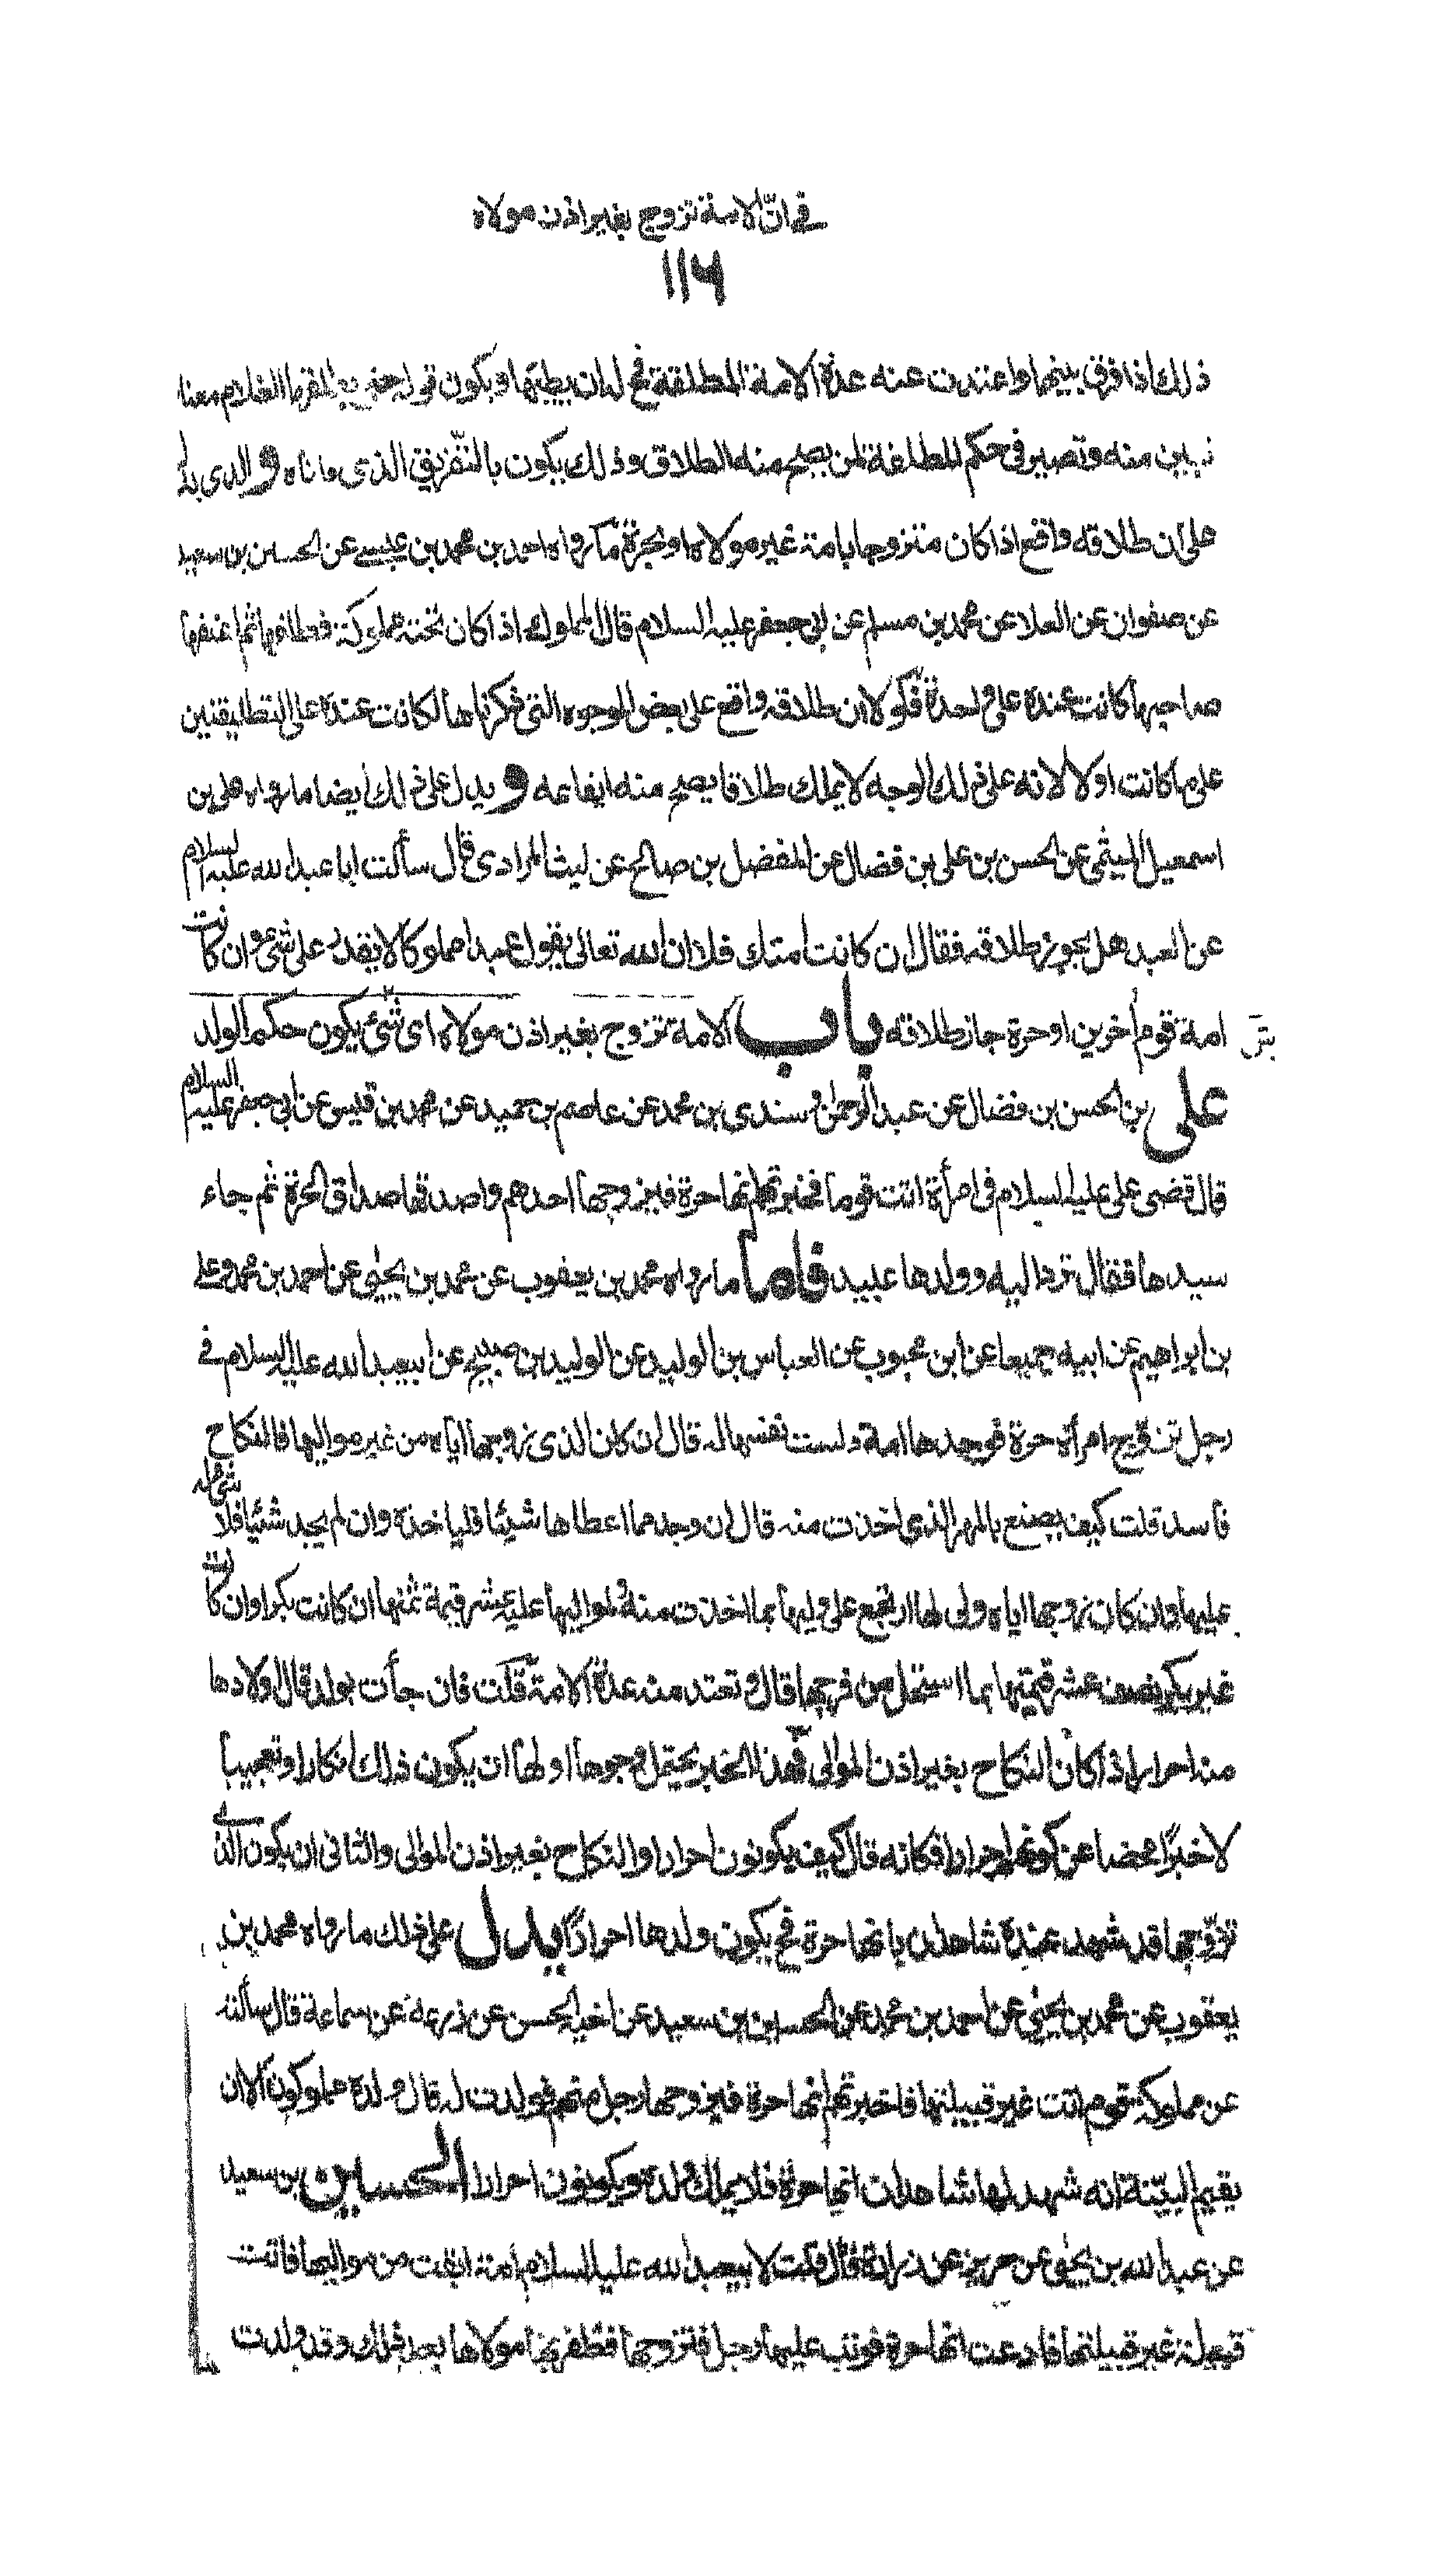 في ان الامة تزوج بغير اذن مولاه
١١٦
ذلك اذا فرق بينهما واعتدت عنه عدة الامة المطلقة فح له ان يطئها ويكون قوله حتى يطلقها الغلام معناه
تبين منه وتصير في حكم المطلقة لمن يصح منه الطلاق وذلك يكون بالتفريق الذي ذكرناه والذي يدل
على ان طلاقه واقع اذا كان متزوجا بامة غير مولاه او بحرة ما رواه احمد بن محمد بن عيسى عن الحسين بن سعيد
عن صفوان عن العلا عن محمد بن مسلم عن ابي جعفر عليه السلام قال المملوك اذا كان تحته مملوكة فطلقها ثم اعتقها
صاحبها كانت عنده على واحدة فلولا ان طلاقه واقع على بعض الوجوه التي ذكرناها لكانت عنده على التطليقتين
على ما كانت اولا لانه على ذلك الوجه لا يملك طلاقا يصح منه ايقاعه ويدل على ذلك ايضا ما رواه علي بن
اسمعيل الميثمي عن الحسن بن علي بن فضال عن المفضل بن صالح عن ليث المرادي قال سألت ابا عبد الله عليه السلام
عن العبد هل يجوز طلاقه فقال ان كانت امتك فلا ان الله تعالى يقول عبدا مملوكا لا يقدر على شئ وان كانت
امة قوم اخرين او حرة جاز طلاقه باب الامة تزوج بغير اذن مولاه اي شئ يكون حكم الولد
علي بن الحسن بن فضال عن عبد الرحمن وسندي بن محمد عن عاصم بن حميد عن محمد بن قيس عن ابي جعفر عليه السلام
قال قضى علي عليه السلام في امرأة اتت قوما فخبرتهم انها حرة فتزوجها احدهم واصدقها صداق الحرة ثم جاء
سيدها فقال ترد اليه وولدها عبيد فاما ما رواه محمد بن يعقوب عن محمد بن يحيى عن احمد بن محمد وعلي
بن ابراهيم عن ابيه جميعا عن ابن محبوب عن العباس بن الوليد عن الوليد بن صبيح عن ابيعبد الله عليه السلام في
رجل تزويج امرأة حرة فوجدها امة دلست نفسها له قال ان كان الذي زوجها اياه من غير مواليها فالنكاح
فاسد قلت كيف يصنع بالمهر الذي اخذت منه قال ان وجد مما اعطاها شيئا فلياخذه وان لم يجد شيئا فلا شئ له
عليها وان كان زوجها اياه ولي لها ارتجع على وليها بما اخذت منه ولمواليها عليه عشر قيمة ثمنها ان كانت بكرا وان كانت
غير بكر نصف عشر قيمتها بما استحل من فرجها قال وتعتد منه عدة الامة قلت فان جاءت بولد قال اولادها
منه احرار اذا كان النكاح بغير اذن الموالي فهذا الخبر يحتمل وجوها اولها ان يكون ذلك انكارا وتعجيبا
لا خبرا محضا عن كونهم احرارا فكانه قال كيف يكونون احرارا والنكاح بغير اذن الموالي والثاني ان يكون الذي
تزوجها قد شهد عنده شاهدان بانها حرة فح يكون ولدها احرارا يدل على ذلك ما رواه محمد بن
يعقوب عن محمد بن يحيى عن احمد بن محمد عن الحسين بن سعيد عن اخيه الحسن عن زرعة عن سماعة قال سألته
عن مملوكة قوم اتت غير قبيلتها فاخبرتهم انها حرة فتزوجها رجل منهم فولدت له قال ولده مملوكون الا ان
يقيم البينة انه شهد لها شاهدان انها حرة فلا يملك ولده ويكونون احرارا الحسين بن سعيد
عن عبد الله بن يحيى عن حريز عن زرارة قال قلت لابيعبد الله عليه السلام امة ابقت من مواليها فاتت
قبيلة غير قبيلتها فادعت انها حرة فوثب عليها رجل فتزوجها فظفر بها مولاها بعد ذلك وقد ولدت